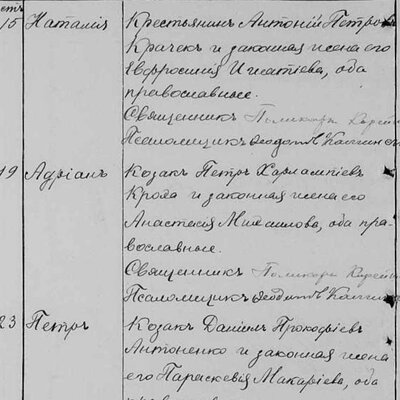 15 Наталія Крестьянинъ Антоній Петров
Крачек и законная жена его
Евфросинія Игнатіева, оба
православные.
Священникъ
Псаломщикъ Ѳеодотъ
19 Адріанъ Козакъ Петръ Харлампіевъ
Крола и законная жена его
Анастасія Михаилова, оба пра-
вославные.
Священникъ
Псаломщикъ Ѳеодотъ
23 Петръ Козакъ Даніилъ Прокофіевъ
Антоненко и законная жена
его Параскевія Макаріева, оба